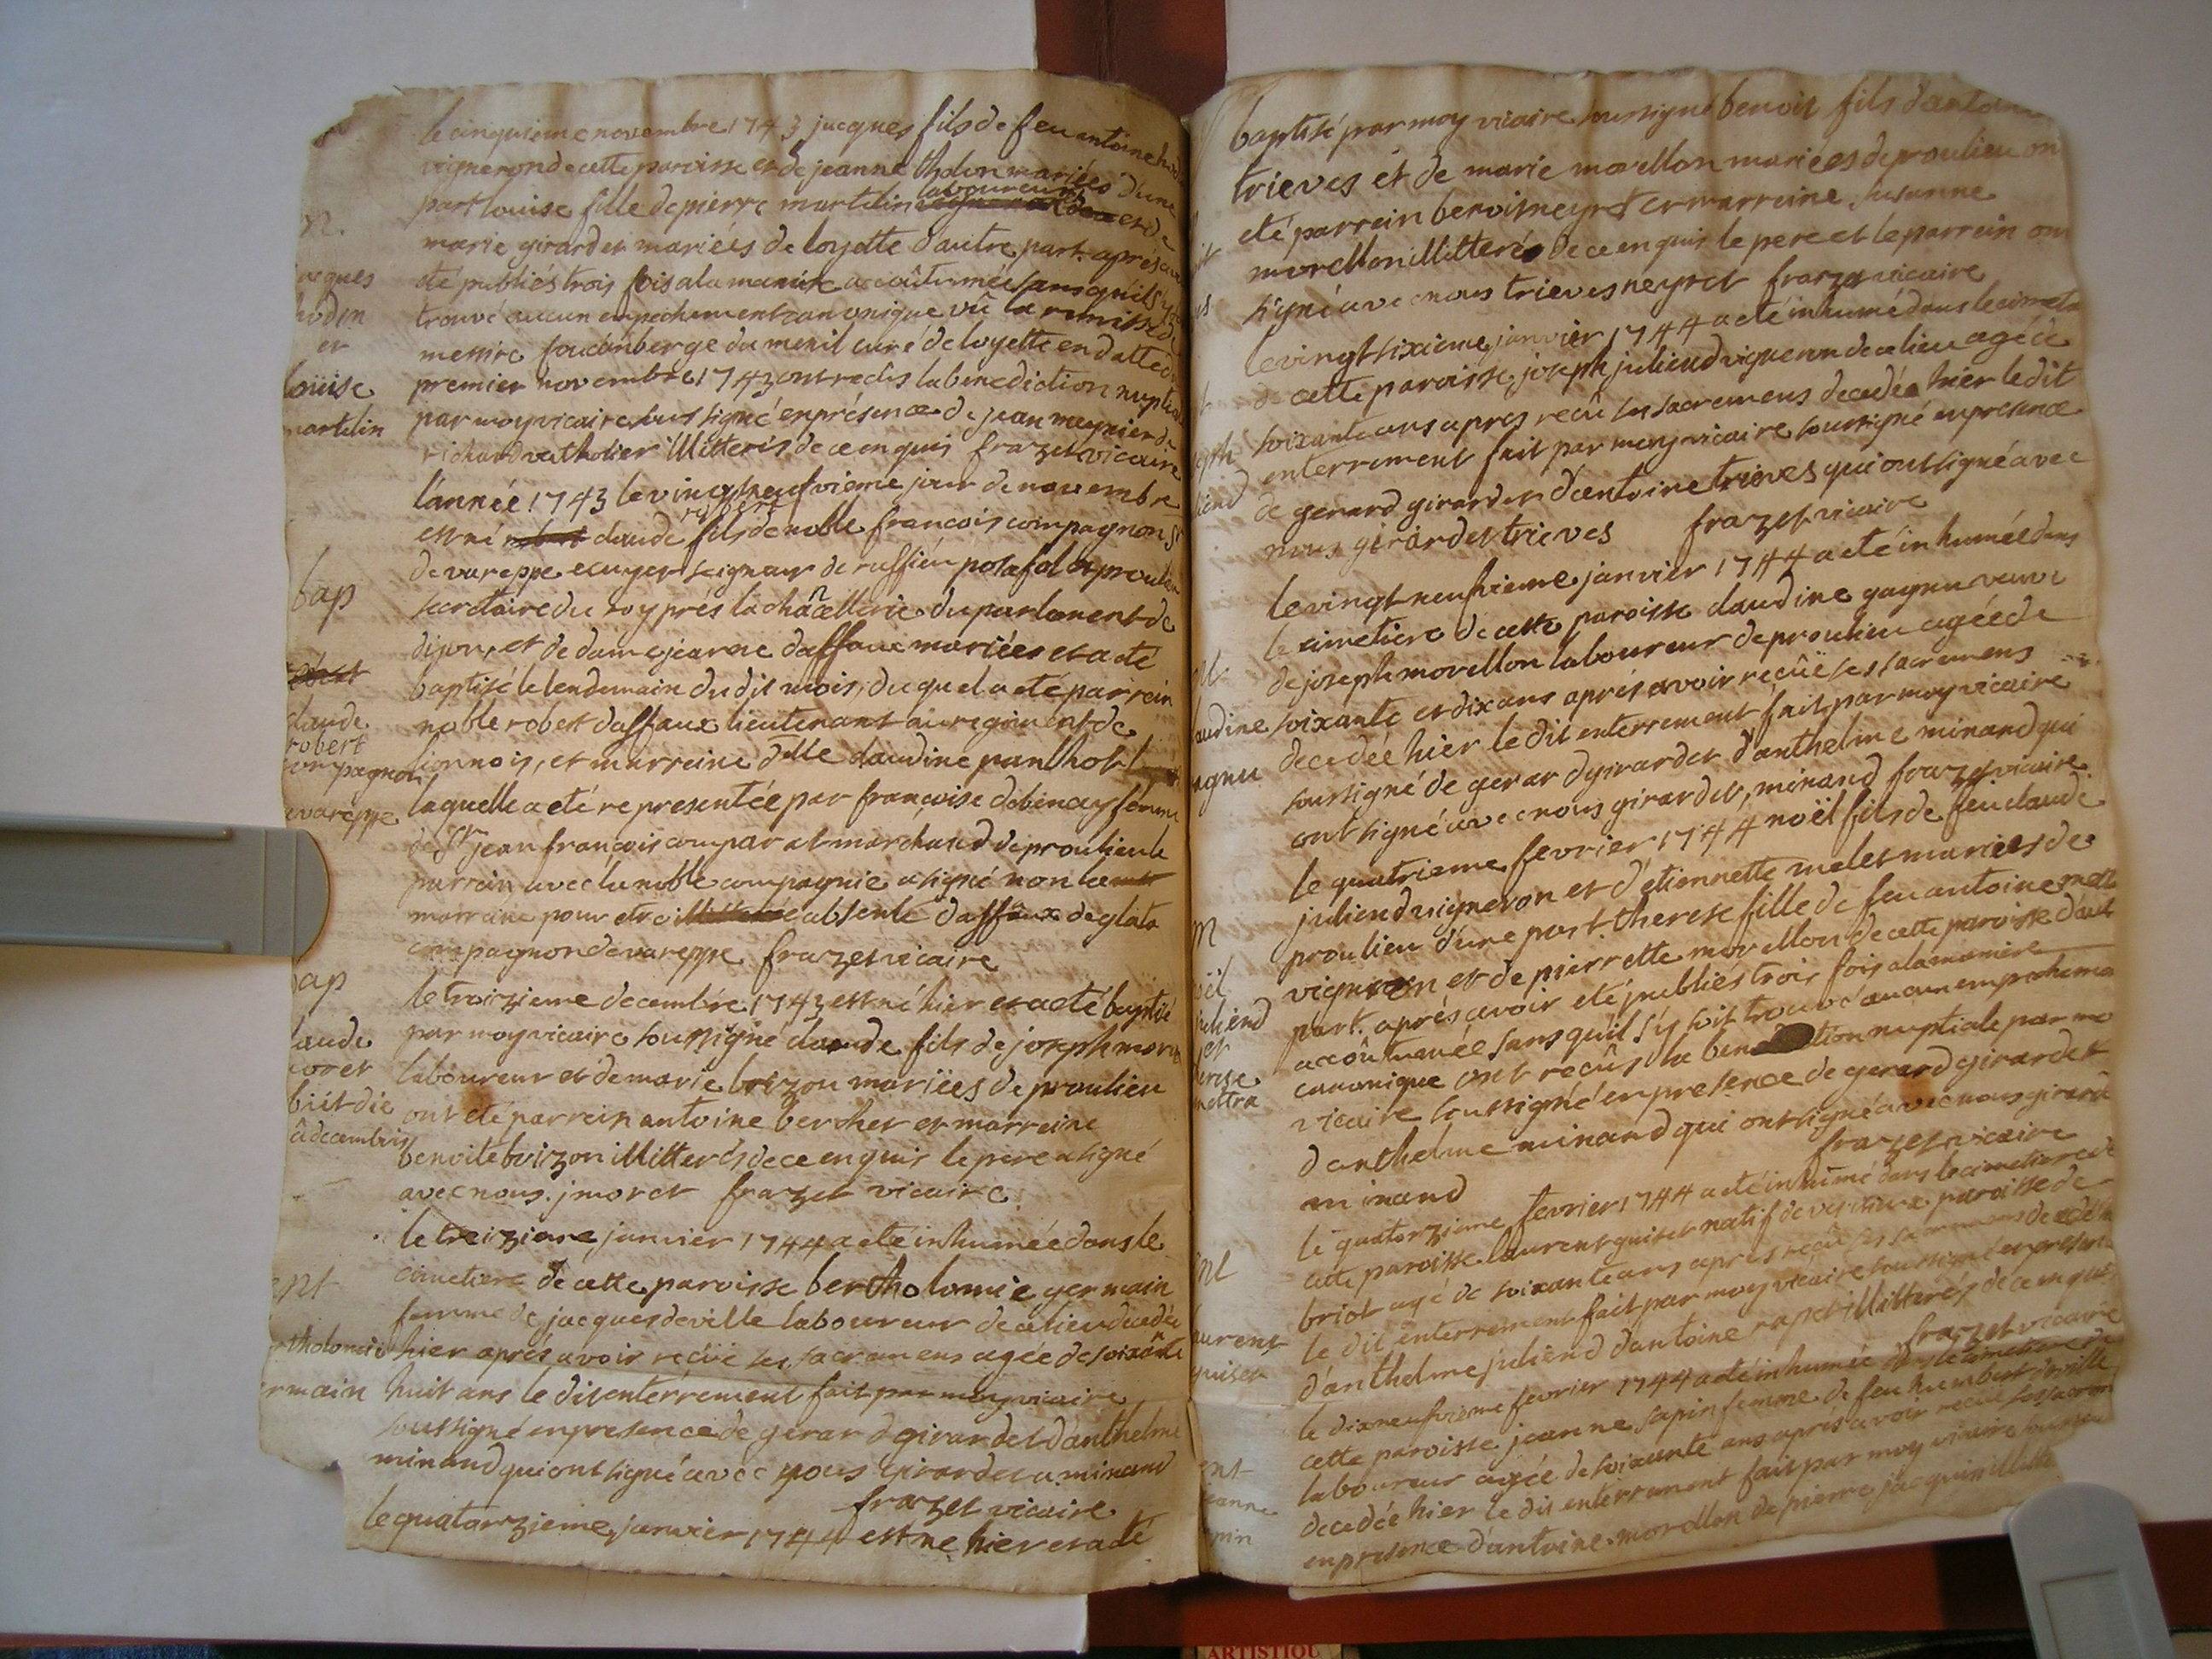 le cinquieme novembre 1743 jacques fils de feu antoine
vigneron de cette paroisse et de jeanne tholon mariées d'une
part louise fille de pierre martelin laboureur et de
n.
marie girardet mariées de loyette d'autre part. aprés
jacques
été publiés trois fois a la maniere accoûtumée sans qu'il s'y
trouvé aucun empechement canonique vû la remisse de
et
messire foucanberge du menil curé de loyette en datte du
louise
premier novembre 1743 ont recûs la benediction nuptiale
martelin
par moy vicaire sous signé en présence de jean meynier de
richard vatholier illitterés de ce enquis frazet vicaire
l'année 1743 le vingt neufvieme jour de novembre
est né claude robert fils de noble francois compagnon Sr
de vareppe ecuyer seigneur de ruffieu posafol et proulieu
bap
secretaire du roy prés la chancellerie du parlement de
dijon, et de dame jeanne daffaux mariées et a eté
baptisé le lendemain du dit mois, du quel a eté parrein
claude
noble robert daffaux lieutenant au regiment de
robert
compagnon
lionnois, et marreine dlle claudine panthot
laquelle a eté representée par françoise debenay femme
vareppe
de Sr jean françois comparat marchand de proulieu le
parrein avec la noble compagnie a signé non la
marreine pour etre absente daffaux deglata
compagnon de vareppe frazet vicaire
bap
le troizieme decembre 1743 est né hier et a eté baptisé
par moy vicaire soussigné claude fils de joseph moret
claude
moret
laboureur et de marie brizon mariées de proulieu
ont eté parrein antoine bercher et marreine
decembris
benoite brizon illitterés de ce enquis le pere a signé
avec nous. j moret frazet vicaire
le treizieme janvier 1744 a eté inhumée dans le
cimetiere de cette paroisse bertholomie germain
ent
femme de jacques deville laboureur de ce lieu decedée
bertholomie
hier aprés avoir recüe ses sacremens agée de soixante
germain
huit ans le dit enterrement fait par moy vicaire
soussigné en presence de gerard girardet d'anthelme
minand qui ont signé avec nous girardet a minand
frazet vicaire
le quatorzieme janvier 1744 est né hier et a eté
baptisé par moy vicaire soussigné benoit fils d'antoine
trieves et de marie morellon mariees de proulieu on
eté parrein benoit neyret et marreine susanne
morellon illitterée de ce enquis le pere et le parrein on
signé avec nous trieves neyret frazet vicaire
le vingt sixieme janvier 1744 a eté inhumé dans le cimetie
de cette paroisse joseph juliend vigneron de ce lieu agé de
soixante ans apres recû ses sacremens decedé hier le dit
enterrement fait par moy vicaire soussigné en presence
de gerard girardet d'antoine trieves qui ont signé avec
nous girardet trieves frazet vicaire
le vingt neufvieme janvier 1744 a eté inhumée dans
le cimetiere de cette paroisse claudine gagneu veuve
de joseph morellon laboureur de proulieu agée de
claudine
soixante et dix ans aprés avoir recûë ses sacremens
decedée hier le dit enterrement fait par moy vicaire
gagneu
soussigné de gerard girardet d'anthelme minand qui
ont signé avec nous girardet, minand frazet vicaire
le quatrieme fevrier 1744 noël fils de feu claude
juliend vigneron et d'etiennette melet mariées de
m
proulieu d'une part. therese fille de feu antoine mett
noël
vigneron et de pierrette morellon de cette paroisse d'aut
juliend
part. aprés avoir eté publiés trois fois a la maniere
et
accoûtumée sans qu'il s'y soit trouvé aucun empechemen
therese
canonique ont recûs la benediction nuptiale par mo
mettra
vicaire soussigné en presence de gerard girardet
d'anthelme minand qui ont signé avec nous girarde
minand frazet vicaire
le quatorzieme fevrier 1744 a eté inhumé dans le cimetiere de
cette paroisse laurent guiset natif de paroisse de
ent
briot agé de soixante ans aprés recû ses sacremens decedé
le dit enterrement fait par moy vicaire soussigné en presen
laurent
d'anthelme juliend d'antoine rapet illitterés de ce enquis
guiset
frazet vicaire
le dixneufvieme fevrier 1744 a eté inhumée dans le cimetiere de
cette paroisse jeanne sapin femme de feu humbert deville
ent
laboureur agée de soixante ans apres avoir recûe ses sacrem
jeanne
decedée hier le dit enterrement fait par moy vicaire soussign
sapin
en presence d'antoine morellon de pierre jacquin illitte
ARTISTIQU